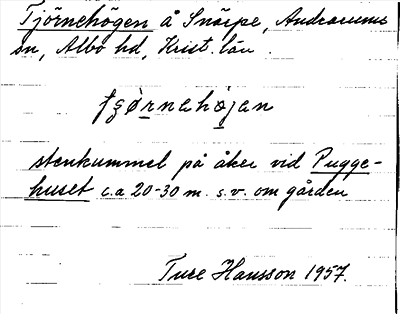 Tjörnehögen å Snärpe, Andrarums
sn, Albo hd, Krist. län.
tʒørnehøjen
stenkummel på åker vid Pugge-
huset c.a 20-30 m. s.v. om gården
Ture Hansson 1957.